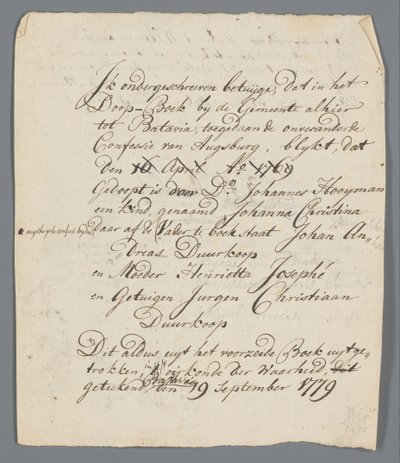 Ik ondergeschreeven betuijge, dat in het
Doop-Boek by de Gemeente alhier
tot Batavia, toegedaan de onveranderde
Confessie van Augsburg, blykt, dat
den 16 April Ao 1769
Gedoopt is door Do Johannes Hooyman
een kind, genaamd Johanna Christina
daar af de Vader te boek staat Johan An-
dreas Duurkoop
en Moeder Henrietta Josephé
en Getuigen Jurgen Christiaan
Duurkoop
Dit aldus uyt het voorzeide Boek uytge-
trokken, oirkonde der Waarheid, dit
getekend Batavia den 19 September 1779